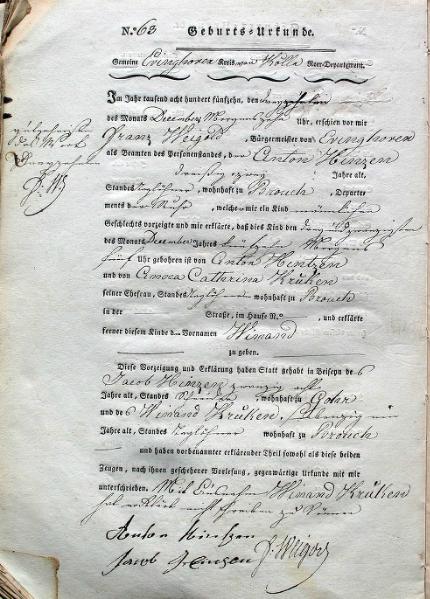 No. 63 Geburts-Urkunde.
Gemeine Evinghoven Kreis von Kölln Roer-Departement.
Im Jahr tausend acht hundert fünfzehn, den
des Monats December Morgens Uhr, erschien vor mir
Franz Weigold, Bürgermeister von Evinghoven
als Beamten des Personenstandes, der Anton Hinzen
Jahre alt,
Standes Taglöhner, wohnhaft zu Brouch, Departe-
ments der welche mir ein Kind männlichen
Geschlechts vorzeigte und mir erklärte, daß dies Kind den
des Monats December Jahrs fünfzehn Morgens
fünf Uhr gebohren ist von Anton Hintzen
und von Anna Cathrina Krüken
seiner Ehefrau, Standes wohnhaft zu Brouch
in der Straße, im Hause N.o , und erklärte
ferner diesem Kinde den Vornamen Winand
zu geben.
Diese Vorzeigung und Erklärung haben Statt gehabt in Beiseyn des
Jacob Hinzen zwanzig acht
Jahre alt, Standes , wohnhaft zu Gohr
und des Winand Krüken,
Jahre alt, Standes Taglöhner wohnhaft zu Brouch
und haben vorbenannter erklärender Theil sowohl als diese beiden
Zeugen, nach ihnen geschehener Vorlesung, gegenwärtige Urkunde mit mir
unterschrieben. Mit Ausnahm Winand Krüken
hat erklärt nicht schreiben zu können
Anton Hintzen
Jacob Hinzen F. Weigold